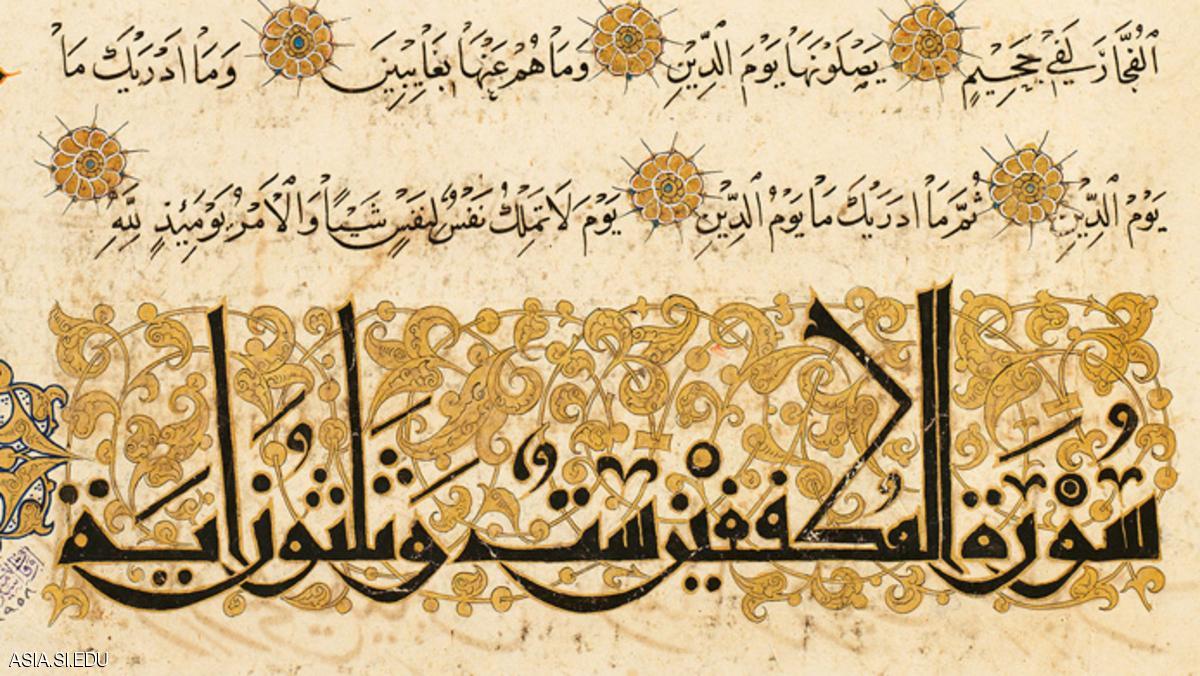 الْفُجَّارَ لَفِي جَحِيمٍ يَصْلَوْنَهَا يَوْمَ الدِّينِ وَمَا هُمْ عَنْهَا بِغَايِبِينَ وَمَا اَدْرَيكَ مَا
يَوْمُ الدِّينِ ثُمَّ مَا اَدْرَيكَ مَا يَوْمُ الدِّينِ يَوْمَ لَا تَمْلِكُ نَفْسٌ لِنَفْسٍ شَيْـًٔا وَالْاَمْرُ يَوْمَئِذٍ لِلَّهِ
سُوْرَةُ المُطففين سِتٌّ وَثلثُونَ ايَة
ASIA.SI.EDU